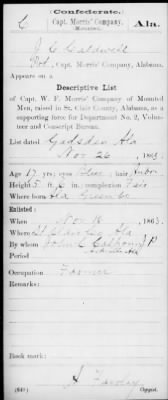 Confederate.
C
Capt. Morris' Company, Mounted.
Ala.
J C Caldwell
Pvt, Capt. Morris' Company, Alabama.
Appears on a
Descriptive List
of Capt. W. F. Morris' Company of Mounted
Men, raised in St. Clair County, Alabama, as a
supporting force for Department No. 2, Volun-
teer and Conscript Bureau.
List dated Gadsden Ala
Nov 26, 1863.
Age 17 years; eyes Blue; hair Aubn.
Height 5 ft. 6 in.; complexion Fair
Where born Ala
Enlisted:
When Nov 18, 1863.
Where St Clair Co, Ala
By whom John C Calhoun J P
Period
Occupation Farmer
Remarks:
Book mark:
(648)
Copyist.